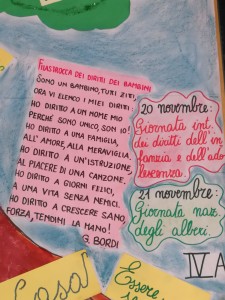 FILASTROCCA DEI DIRITTI DEI BAMBINI
SONO UN BAMBINO, TUTTI ZITTI,
ORA VI ELENCO I MIEI DIRITTI:
HO DIRITTO A UN NOME MIO
PERCHÉ SONO UNICO, SON IO!
HO DIRITTO A UNA FAMIGLIA,
ALL'AMORE, ALLA MERAVIGLIA,
HO DIRITTO A UN'ISTRUZIONE,
AL PIACERE DI UNA CANZONE,
HO DIRITTO A GIORNI FELICI,
A UNA VITA SENZA NEMICI,
HO DIRITTO A CRESCERE SANO,
FORZA, TENDIMI LA MANO!
G. BORDI
20 novembre:
Giornata int.
dei diritti dell'in
fanzia e dell'ado
lescenza.
21 novembre:
Giornata naz.
degli alberi.
IV A
Casa
Essere